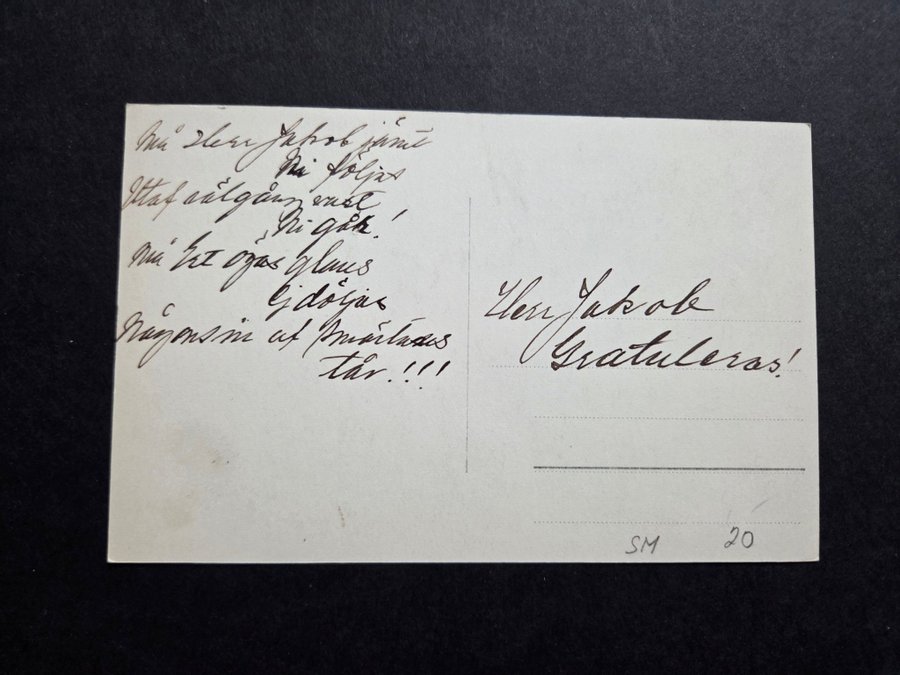 Må Herr Jakob jämt
Ni följas
Utaf välgång vart
Ni går!
Må Ert ögas glans
Ej döljas
Någonsin af smärtans
tår.!!!
Herr Jakob
Gratuleras!
SM 20